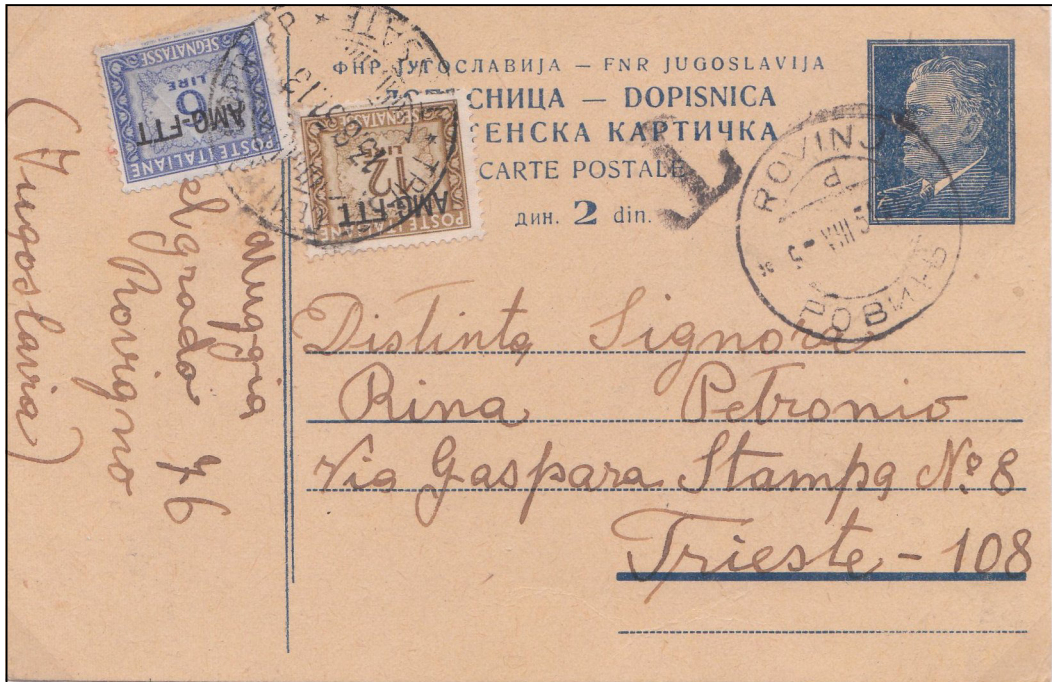 ФНР ЈУГОСЛАВИЈА — FNR JUGOSLAVIJA
СНИЦА — DOPISNICA
ЕНСКА КАРТИЧКА
CARTE POSTALE
дин. 2 din.
T
ROVINJ
РОВИЊ
SEGNATASSE
LIRE
6
AMG-FTT
POSTE ITALIANE
SEGNATASSE
12
AMG-FTT
POSTE ITALIANE
Distinta Signora
Rina Petronio
Via Gaspara Stampa Nº 8
Trieste - 108
Muggia
elgrado 76
Rovigno
(Jugoslavia)